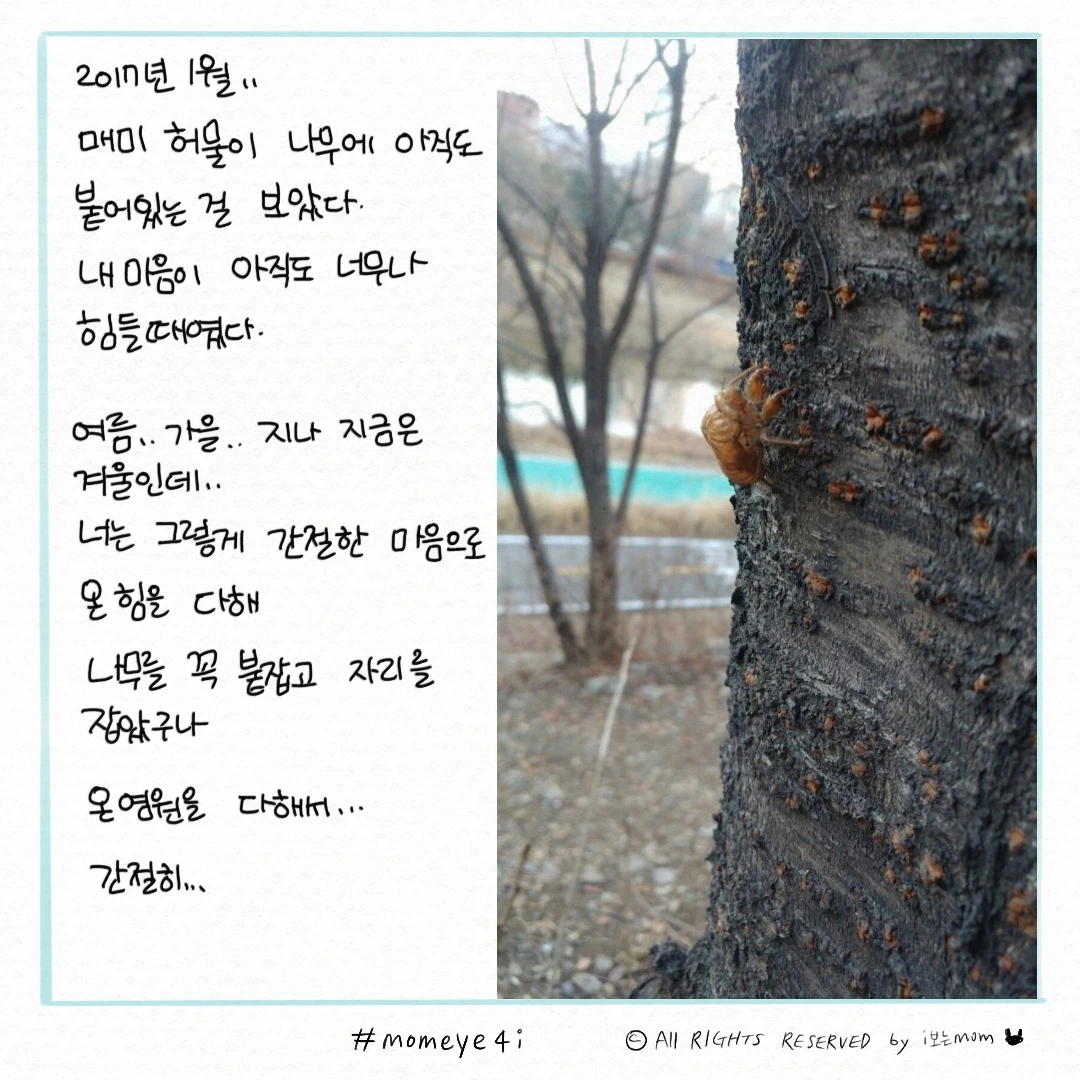 2017년 1월..
매미 허물이 나무에 아직도
붙어있는 걸 보았다.
내 마음이 아직도 너무나
힘들때였다.
여름.. 가을.. 지나 지금은
겨울인데..
너는 그렇게 간절한 마음으로
온 힘을 다해
나무를 꼭 붙잡고 자리를
잡았구나
온 영원을 다해서...
간절히...
#momeye4i
© All RIGHTS RESERVED by i보는mom